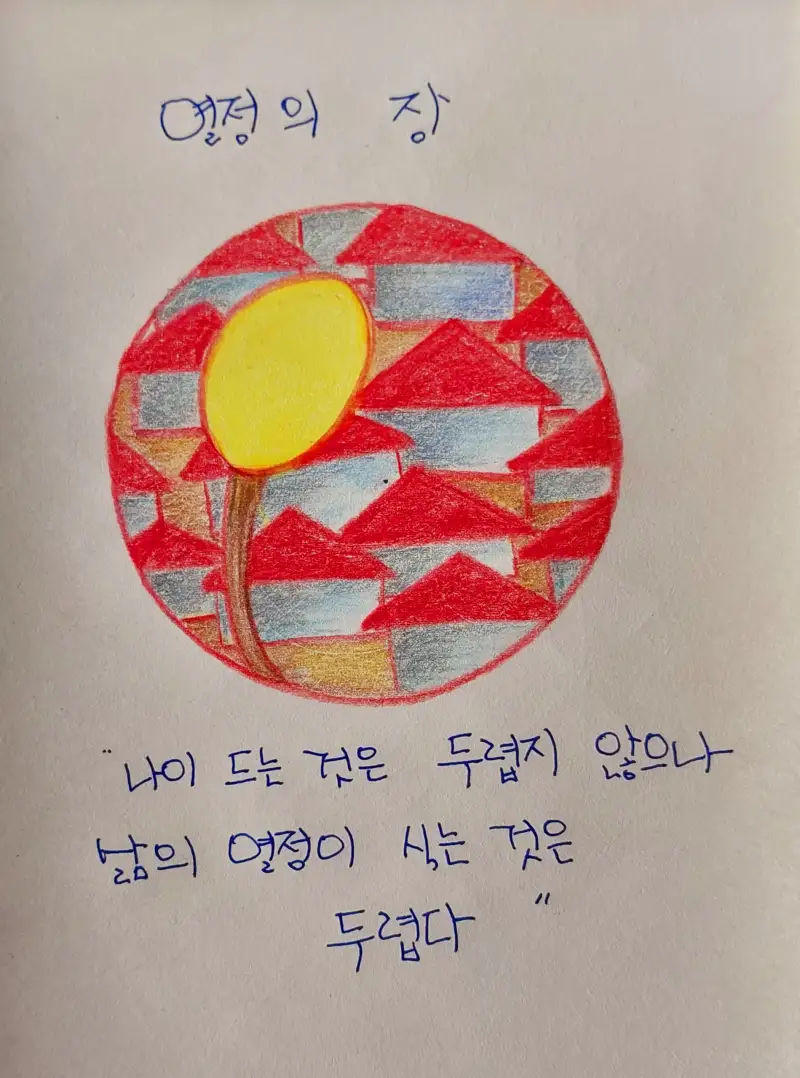 열정의 장
"나이 드는 것은 두렵지 않으나
삶의 열정이 식는 것은
두렵다"